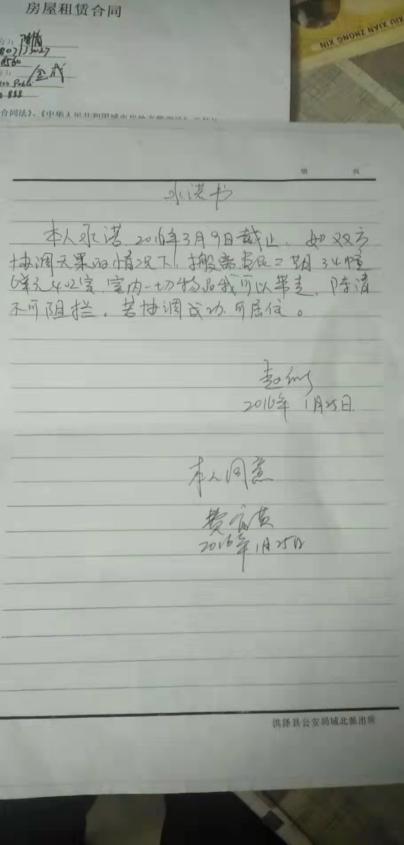 房屋租赁合同
合同法》、《中华人民共和国城市房地产管理法》
XIU XIAN ZHONG XIN
承诺书
本人承诺 2016年3月9日截止，如双方
协调无果的情况下，搬离 二期34幢
6单元402室，室内一切物品我可以带走，陈清
不可阻拦，若协调成功可居住。
2016年1月25日
本人同意
2016年1月25日
洪泽县公安局城北派出所